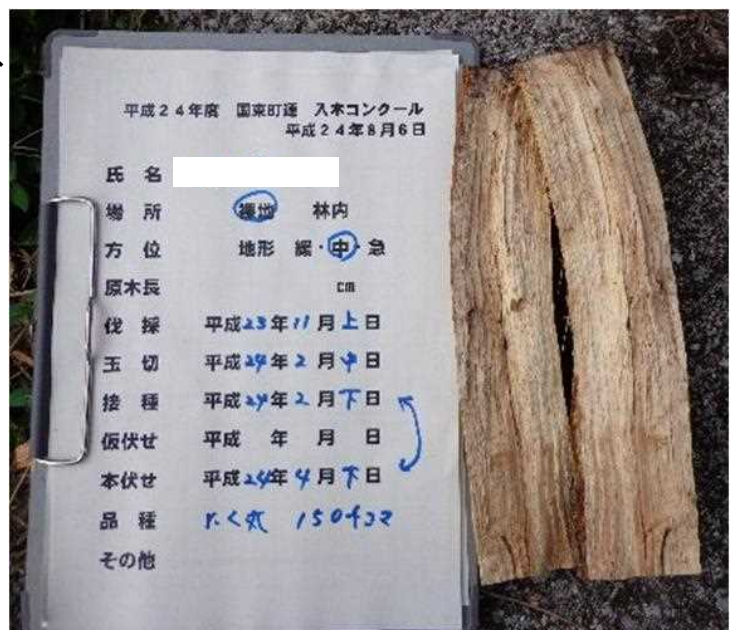 平成24年度 国東町蓮 入木コンクール
平成24年8月6日
氏 名
場 所 裸地 林内
方 位 地形 緩・中・急
原木長 cm
伐 採 平成23年11月上日
玉 切 平成24年2月中日
接 種 平成24年2月下日
仮伏せ 平成 年 月 日
本伏せ 平成24年4月下日
品 種
その他